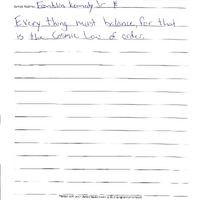 Artist Name: Franklin Kennedy Jr
Every thing must balance, for that
is the Cosmic Law of order.